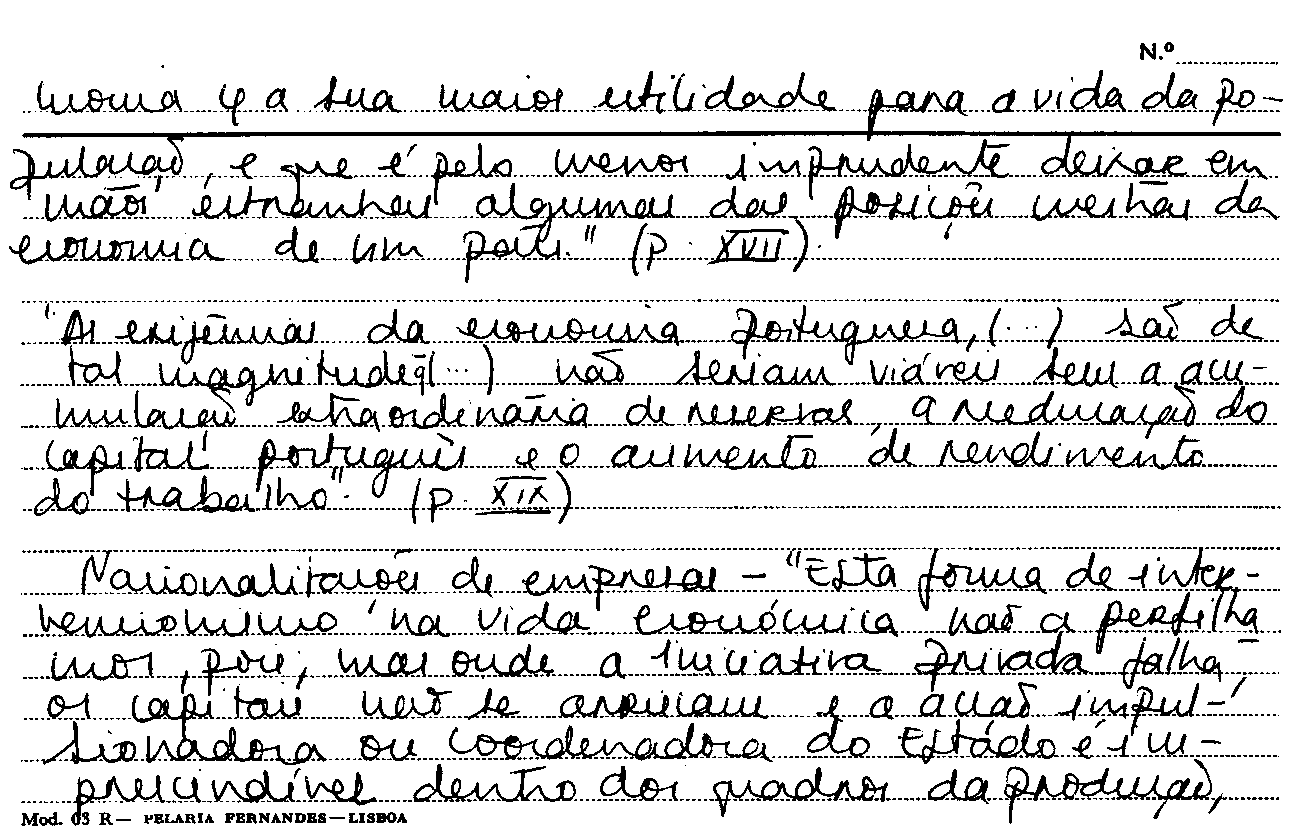 N.º
nomia q a sua maior utilidade para a vida da po-
pulação, e que é pelo menos imprudente deixar em
mãos estranhas algumas das posições mestras da
economia de um país." (p. XVII).
"As exigências da economia portuguesa, (...) são de
tal magnitude q (...) não seriam viáveis sem a acu-
mulação extraordinária de reservas, a reeducação do
capital português e o aumento de rendimento
do trabalho". (p. XIX)
Nacionalizações de empresas - "Esta forma de inter-
vencionismo na vida económica não a perfilha
mos, pois, mas onde a iniciativa privada falha,
os capitais não se arriscam e a acção impul-
sionadora ou coordenadora do Estado é im-
prescindível dentro dos quadros da produção,
Mod. 63 R — PELARIA FERNANDES — LISBOA